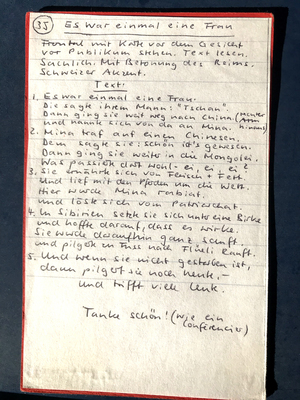 35 Es war einmal eine Frau
Frontal mit Karte vor dem Gesicht
vor Publikum stehen. Text lesen.
Sachlich. Mit Betonung des Reims.
Schweizer Akzent.
Text:
1. Es war einmal eine Frau.
Die sagte ihrem Mann: "Tschau".
Dann ging sie weit weg nach China
und nannte sich von da an Mina.
2. Mina traf auf einen Chinesen.
Dem sagte sie: schön ist's gewesen.
Dann ging sie weiter in die Mongolei.
Was passiert dort wohl - ei, ei, ei
3. Sie ernährte sich von Fleisch + Fett
Und lief mit den Pferden um die Wette.
Hier wurde Mina rabiat
und löste sich vom Patriarchat.
4. In Sibirien setzte sie sich unter eine Birke
und hoffte darauf, dass es wirke.
Sie wurde daraufhin ganz sanft
und pilgerte zu Fuss nach Flüeli Ranft.
5. Und wenn sie nicht gestorben ist,
dann pilgert sie noch heute. -
Und trifft viele Leute.
Tanke schön! (wie ein
Conférencier)